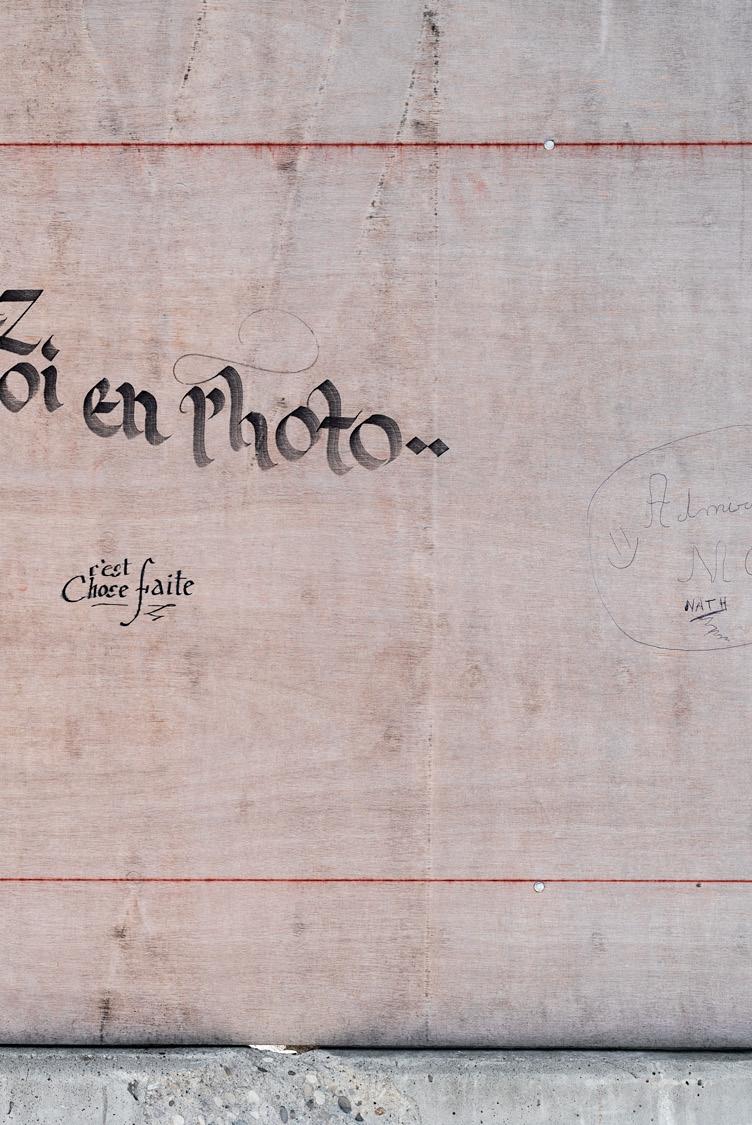 z,
oi en photo..
c'est
Chose faite
NATH